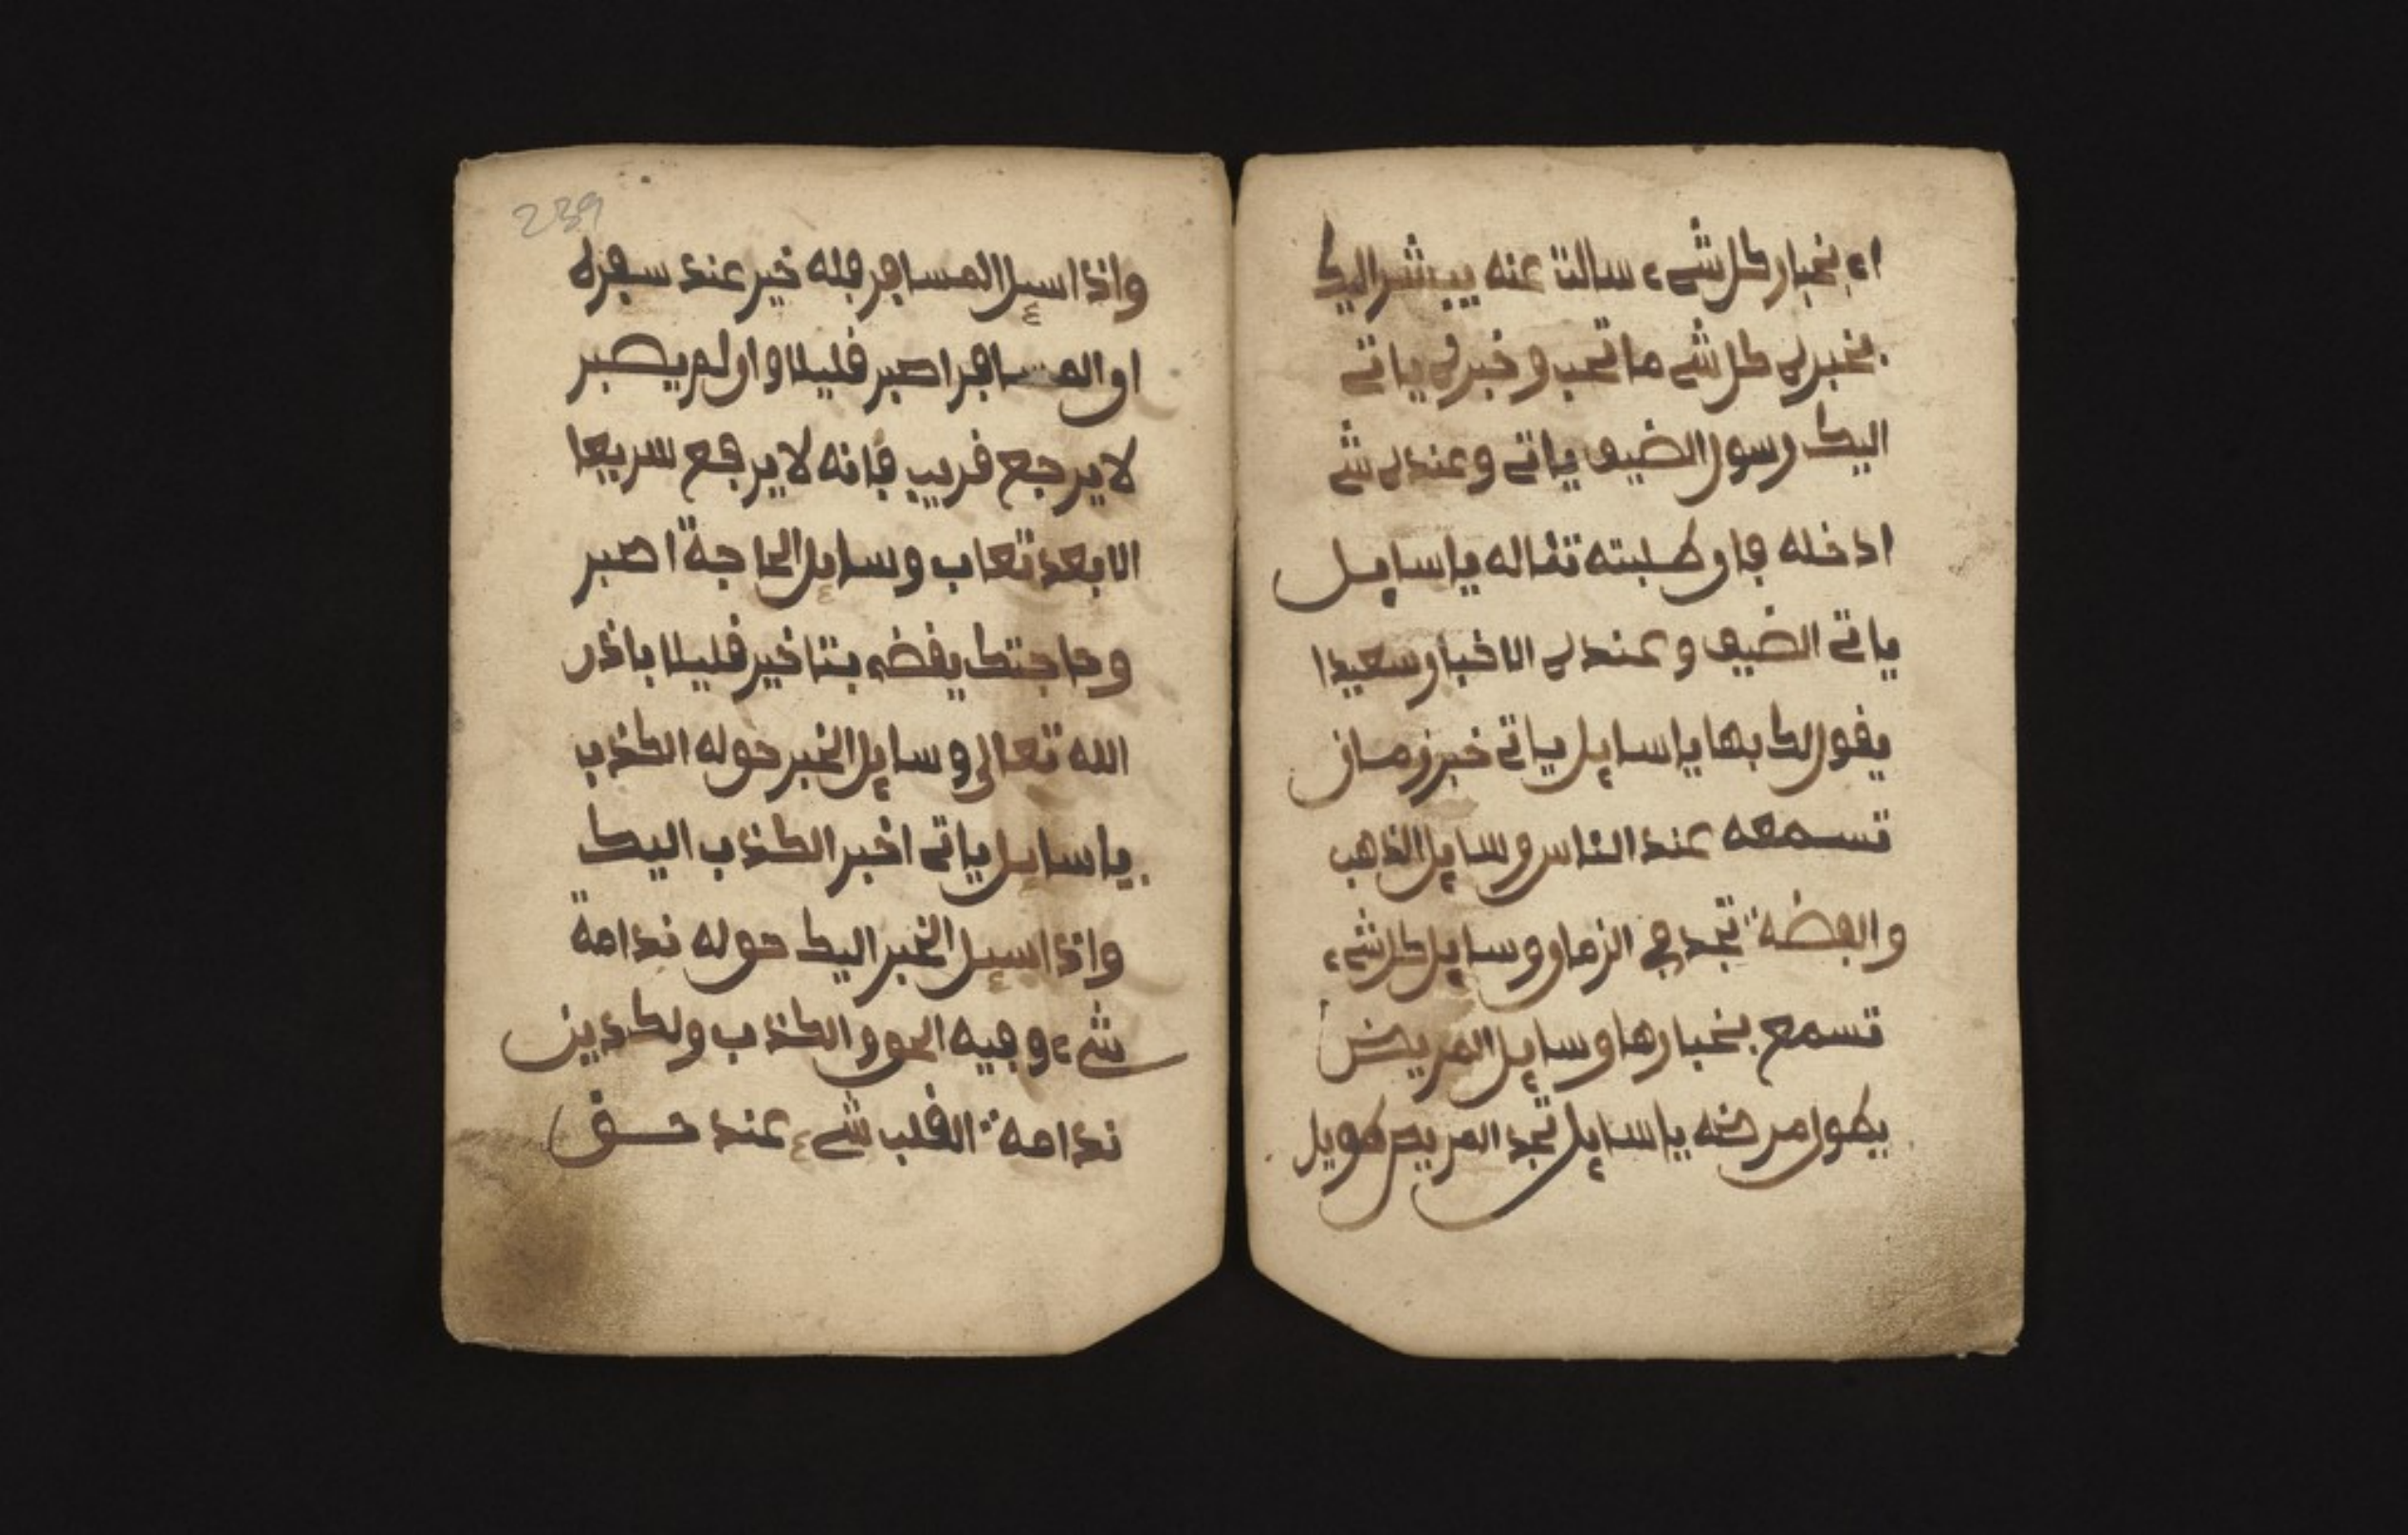 اء بخبار كل شيء سالت عنه يبشر اليك
بخبرك كل شے ما تحب وخبرك ياتے
اليك رسول الضيف ياتے وعندك شے
ادخله فان طلبته تناله يا سايل
ياتے الضيف وعندك الاخبار سعيدا
يقول لك بها يا سايل ياتے خبر زمان
تسمعه عند الناس وسايل الذهب
والفضة تجد في الزمان وسايل كل شيء
تسمع بخبارها وسايل المريض
يطول مرضه يا سايل تجد المريض طويل
239
واذا سيل المسافر فله خير عند سفره
او المسافر اصبر قليلا وان لم يصبر
لا يرجع قريب فانه لا يرجع سريعا
الا بعد تعاب وسايل الحاجة اصبر
وحاجتك يقضى بتاخير قليلا باذن
الله تعالى وسايل الخبر حوله الكذب
يا سايل ياتے اخبر الكذب اليك
واذا سيل الخبر اليك حوله ندامة
شيء وفيه الحق والكذب ولكن دين
ندامة القلب شيء عند حق